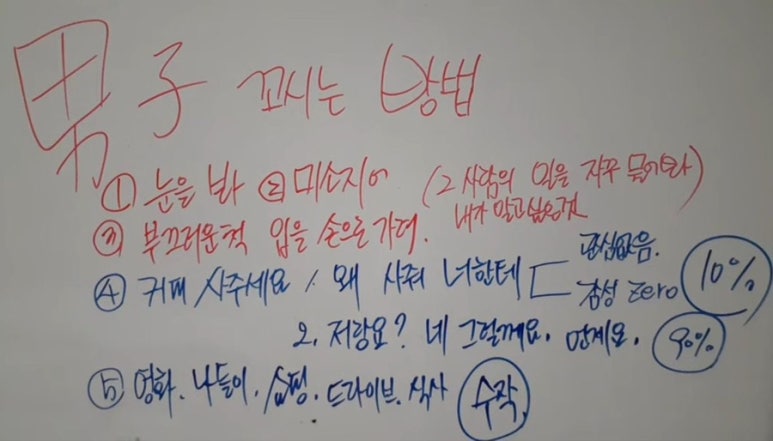 男子 꼬시는 방법
① 눈을 봐 ② 미소지어 (그 사람의 일을 자꾸 물어봐라)
내가 알고싶은것
③ 부끄러운척 입을 손으로 가려.
④ 커피 사주세요 1. 왜 사줘 너한테 관심없음.
감성 zero 10%
2. 저랑요? 네 그럴께요. 언제요. 90%
⑤ 영화. 나들이. 쇼핑. 드라이브. 식사 수작